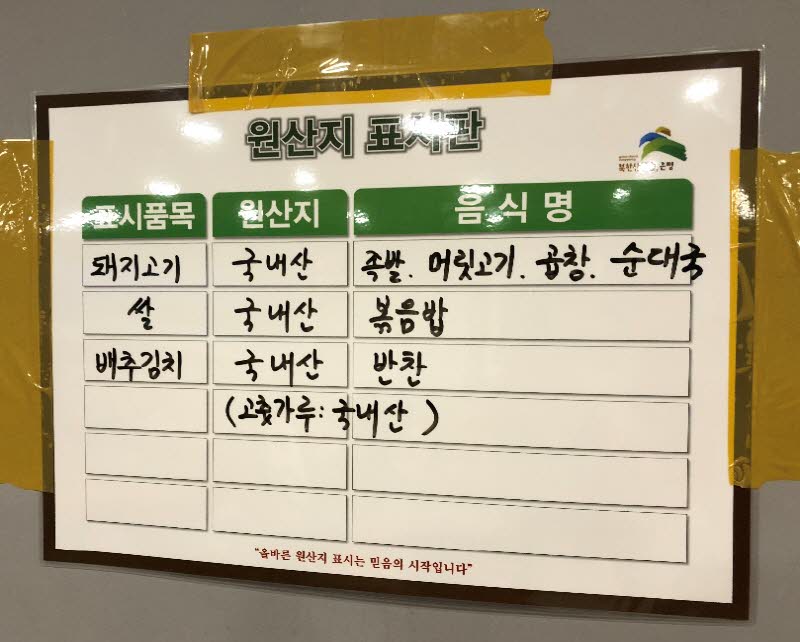 원산지 표시판
북한산 은평
표시품목 원산지 음식명
돼지고기 국내산 족발. 머릿고기. 곱창. 순대국
쌀 국내산 볶음밥
배추김치 국내산 반찬
(고춧가루: 국내산)
"올바른 원산지 표시는 믿음의 시작입니다"